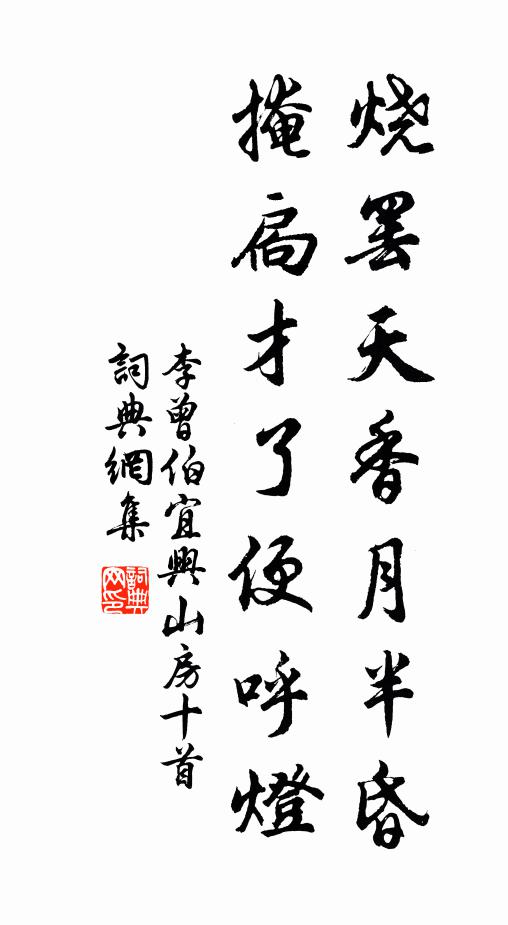 烧罢天香月半昏
掩扄才了便呼燈
李曾伯宜興山房十首
詞典網集
詞典网印